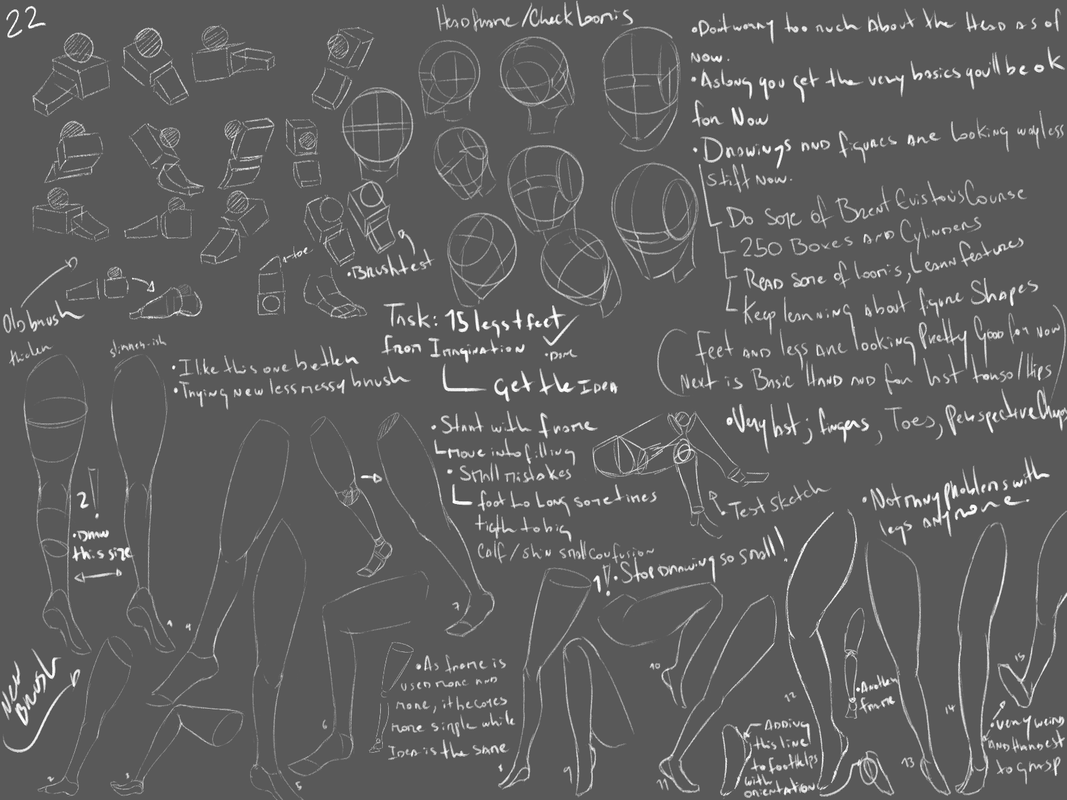 22
Head frame/Check Loomis
•Dont worry too much About the Head as of
Now.
•Aslong you get the very basics you'll be ok
for Now
•Drawings and figures are looking way less
Stiff Now.
Do some of Brent Evistons Course
250 Boxes AND Cylinders
Read some of loomis, Learn features
Keep learning about figure Shapes
(feet AND legs are looking Pretty Good for now)
Next is Basic Hand and for last torso/Hips
•Very last; fingers, Toes, Perspective
toe
•Brushtest
Old brush
Task: 15 legs+feet
from Imagination
•Done
Get the IDEA
thicker
slimmer-ish
•I like this one better
•Trying new less messy brush
2!
•Draw
this size
•Start with frame
move into filling
•Small mistakes
foot to long sometimes
tigth to big
Calf/shin small confusion
•Test sketch
•Not many problems with
legs anymore
1!
•Stop Drawing so small!
New
Brush
•As frame is
used more and
more, it becomes
more simple while
Idea is the same
Adding
this line
to foot helps
with
orientation
•Another
frame
•very weird
and hardest
to grasp
1
4
7
10
12
14
15
6
2
3
5
8
9
11
13